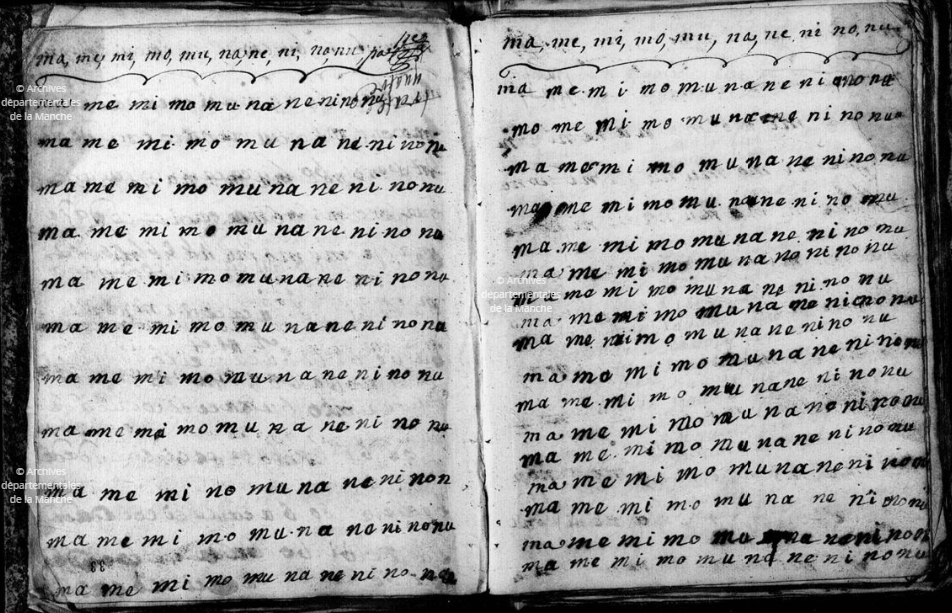 ma, me, mi, mo, mu, na, ne, ni, no, nu,
ma me mi mo mu na ne ni no nu
ma me mi mo mu na ne ni no nu
ma me mi mo mu na ne ni no nu
ma me mi mo mu na ne ni no nu
ma me mi mo mu na ne ni no nu
ma me mi mo mu na ne ni no nu
ma me mi mo mu na ne ni no nu
ma me mi mo mu na ne ni no nu
ma me mi no mu na ne ni non
ma me mi mo mu na ne ni no nu
38
ma me mi mo mu na ne ni no nu
ma, me, mi, mo, mu, na, ne, ni no, nu
ma me mi mo mu na ne ni no na
mo me mi mo mu na ne ni no nu
ma me mi mo mu na ne ni no nu
ma me mi mo mu na ne ni no nu
ma me mi mo mu na ne ni no nu
ma me mi mo mu na no ni no nu
me mi mo mu na ne ni no nu
ma me mi mo mu na ne ni no nu
ma me mi mo mu na ne ni no nu
ma mo mi mo mu na ne ni no
ma me mi mo mu na ne ni no nu
ma me mi mo mu na no ni no nu
ma me mi mo mu na ne ni no nu
ma me mi mo mu na ne ni no
ma me mi mo mu na ne ni no nu
ma me mi mo mu na ne ni no
ma me mi mo mu na ne ni no nu
© Archives
départementales
de la Manche
© Archives
départementales
de la Manche
© Archives
départementales
de la Manche